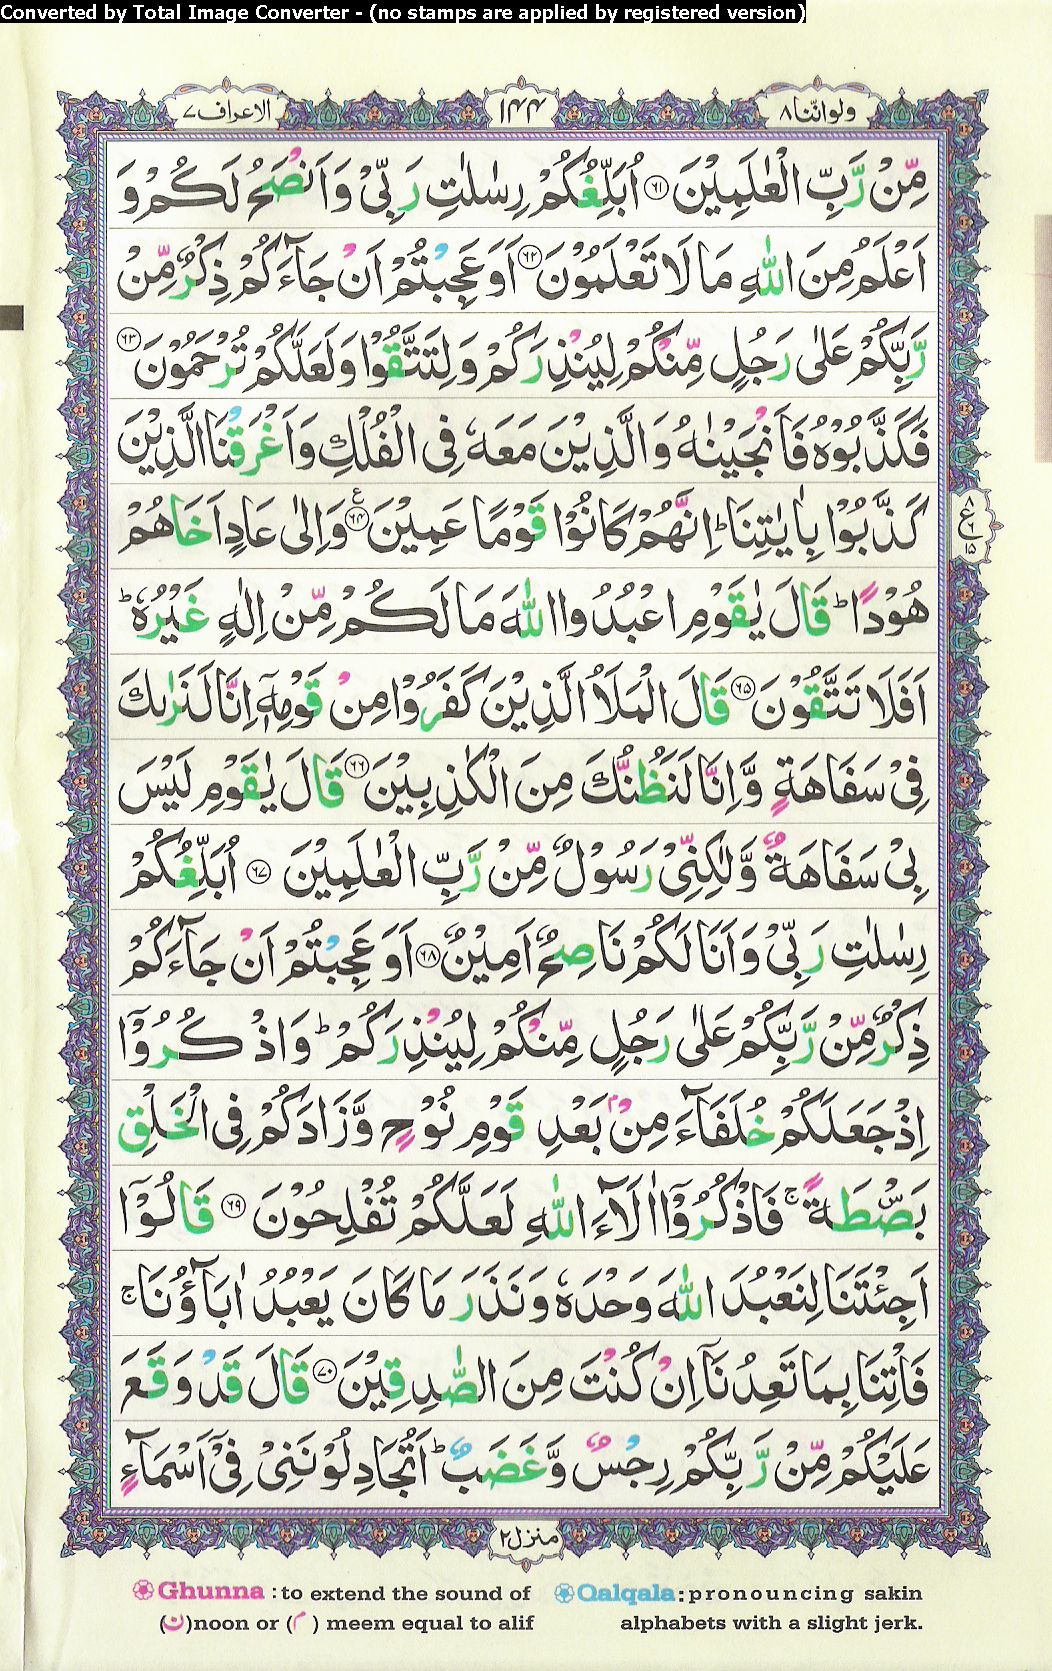 Converted by Total Image Converter - (no stamps are applied by registered version)
الاعراف ٧ ١٤٤ ولواننا ٨
مِّنْ رَّبِّ الْعٰلَمِيْنَ ﴿٦١﴾ اُبَلِّغُكُمْ رِسٰلٰتِ رَبِّيْ وَاَنْصَحُ لَكُمْ وَ
اَعْلَمُ مِنَ اللّٰهِ مَا لَا تَعْلَمُوْنَ ﴿٦٢﴾ اَوَعَجِبْتُمْ اَنْ جَآءَكُمْ ذِكْرٌ مِّنْ
رَّبِّكُمْ عَلٰى رَجُلٍ مِّنْكُمْ لِيُنْذِرَكُمْ وَلِتَتَّقُوْا وَلَعَلَّكُمْ تُرْحَمُوْنَ ﴿٦٣﴾
فَكَذَّبُوْهُ فَاَنْجَيْنٰهُ وَالَّذِيْنَ مَعَهٗ فِي الْفُلْكِ وَاَغْرَقْنَا الَّذِيْنَ
كَذَّبُوْا بِاٰيٰتِنَا ؕ اِنَّهُمْ كَانُوْا قَوْمًا عَمِيْنَ ﴿٦٤﴾ ع وَاِلٰى عَادٍ اَخَاهُمْ
٨ ع ٦ ١٥
هُوْدًا ؕ قَالَ يٰقَوْمِ اعْبُدُوا اللّٰهَ مَا لَكُمْ مِّنْ اِلٰهٍ غَيْرُهٗ ؕ
اَفَلَا تَتَّقُوْنَ ﴿٦٥﴾ قَالَ الْمَلَاُ الَّذِيْنَ كَفَرُوْا مِنْ قَوْمِهٖۤ اِنَّا لَنَرٰىكَ
فِيْ سَفَاهَةٍ وَّاِنَّا لَنَظُنُّكَ مِنَ الْكٰذِبِيْنَ ﴿٦٦﴾ قَالَ يٰقَوْمِ لَيْسَ
بِيْ سَفَاهَةٌ وَّلٰكِنِّيْ رَسُوْلٌ مِّنْ رَّبِّ الْعٰلَمِيْنَ ﴿٦٧﴾ اُبَلِّغُكُمْ
رِسٰلٰتِ رَبِّيْ وَاَنَا لَكُمْ نَاصِحٌ اَمِيْنٌ ﴿٦٨﴾ اَوَعَجِبْتُمْ اَنْ جَآءَكُمْ
ذِكْرٌ مِّنْ رَّبِّكُمْ عَلٰى رَجُلٍ مِّنْكُمْ لِيُنْذِرَكُمْ ؕ وَاذْكُرُوْۤا
اِذْ جَعَلَكُمْ خُلَفَآءَ مِنْۢ بَعْدِ قَوْمِ نُوْحٍ وَّزَادَكُمْ فِي الْخَلْقِ
بَصْۜطَةً ۚ فَاذْكُرُوْۤا اٰلَآءَ اللّٰهِ لَعَلَّكُمْ تُفْلِحُوْنَ ﴿٦٩﴾ قَالُوْۤا
اَجِئْتَنَا لِنَعْبُدَ اللّٰهَ وَحْدَهٗ وَنَذَرَ مَا كَانَ يَعْبُدُ اٰبَآؤُنَا ۚ
فَاْتِنَا بِمَا تَعِدُنَاۤ اِنْ كُنْتَ مِنَ الصّٰدِقِيْنَ ﴿٧٠﴾ قَالَ قَدْ وَقَعَ
عَلَيْكُمْ مِّنْ رَّبِّكُمْ رِجْسٌ وَّغَضَبٌ ؕ اَتُجَادِلُوْنَنِيْ فِيْۤ اَسْمَآءٍ
منزل ٢
Ghunna : to extend the sound of (ن)noon or (م) meem equal to alif
Qalqala : pronouncing sakin alphabets with a slight jerk.